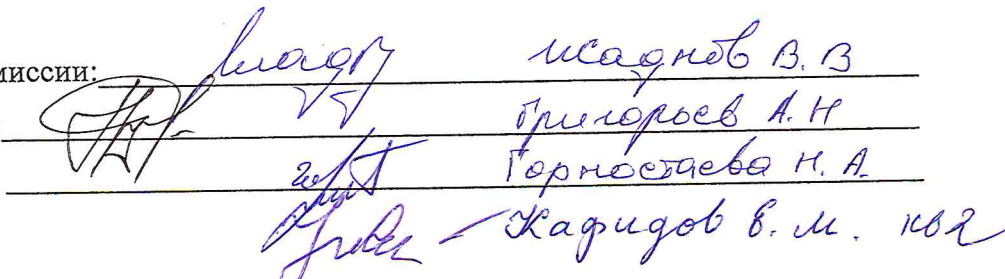 миссии: Жаднов В. В
Григорьев А. Н
Горностаева Н. А.
Кафидов Е. М. кв 2